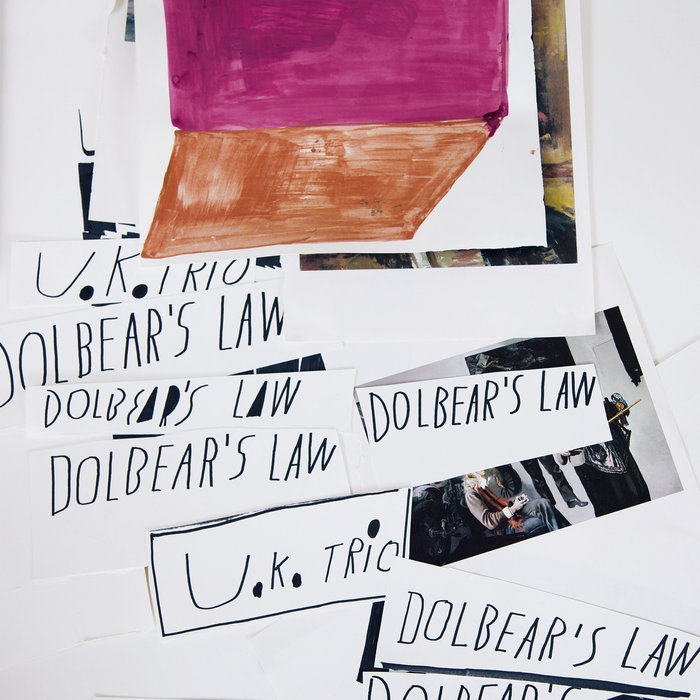 U.K. TRIO
DOLBEAR'S LAW
DOLBEAR'S LAW
DOLBEAR'S LAW
DOLBEAR'S LAW
U.K. TRIO
DOLBEAR'S LAW
DOLBEAR'S